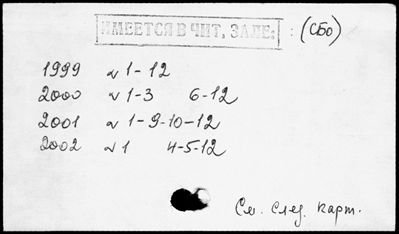 ИМЕЕТСЯ В ЧИТ. ЗАЛЕ: : (СБО)
1999 № 1-12
2000 № 1-3 6-12
2001 № 1-9-10-12
2002 № 1 4-5-12
См. след. карт.